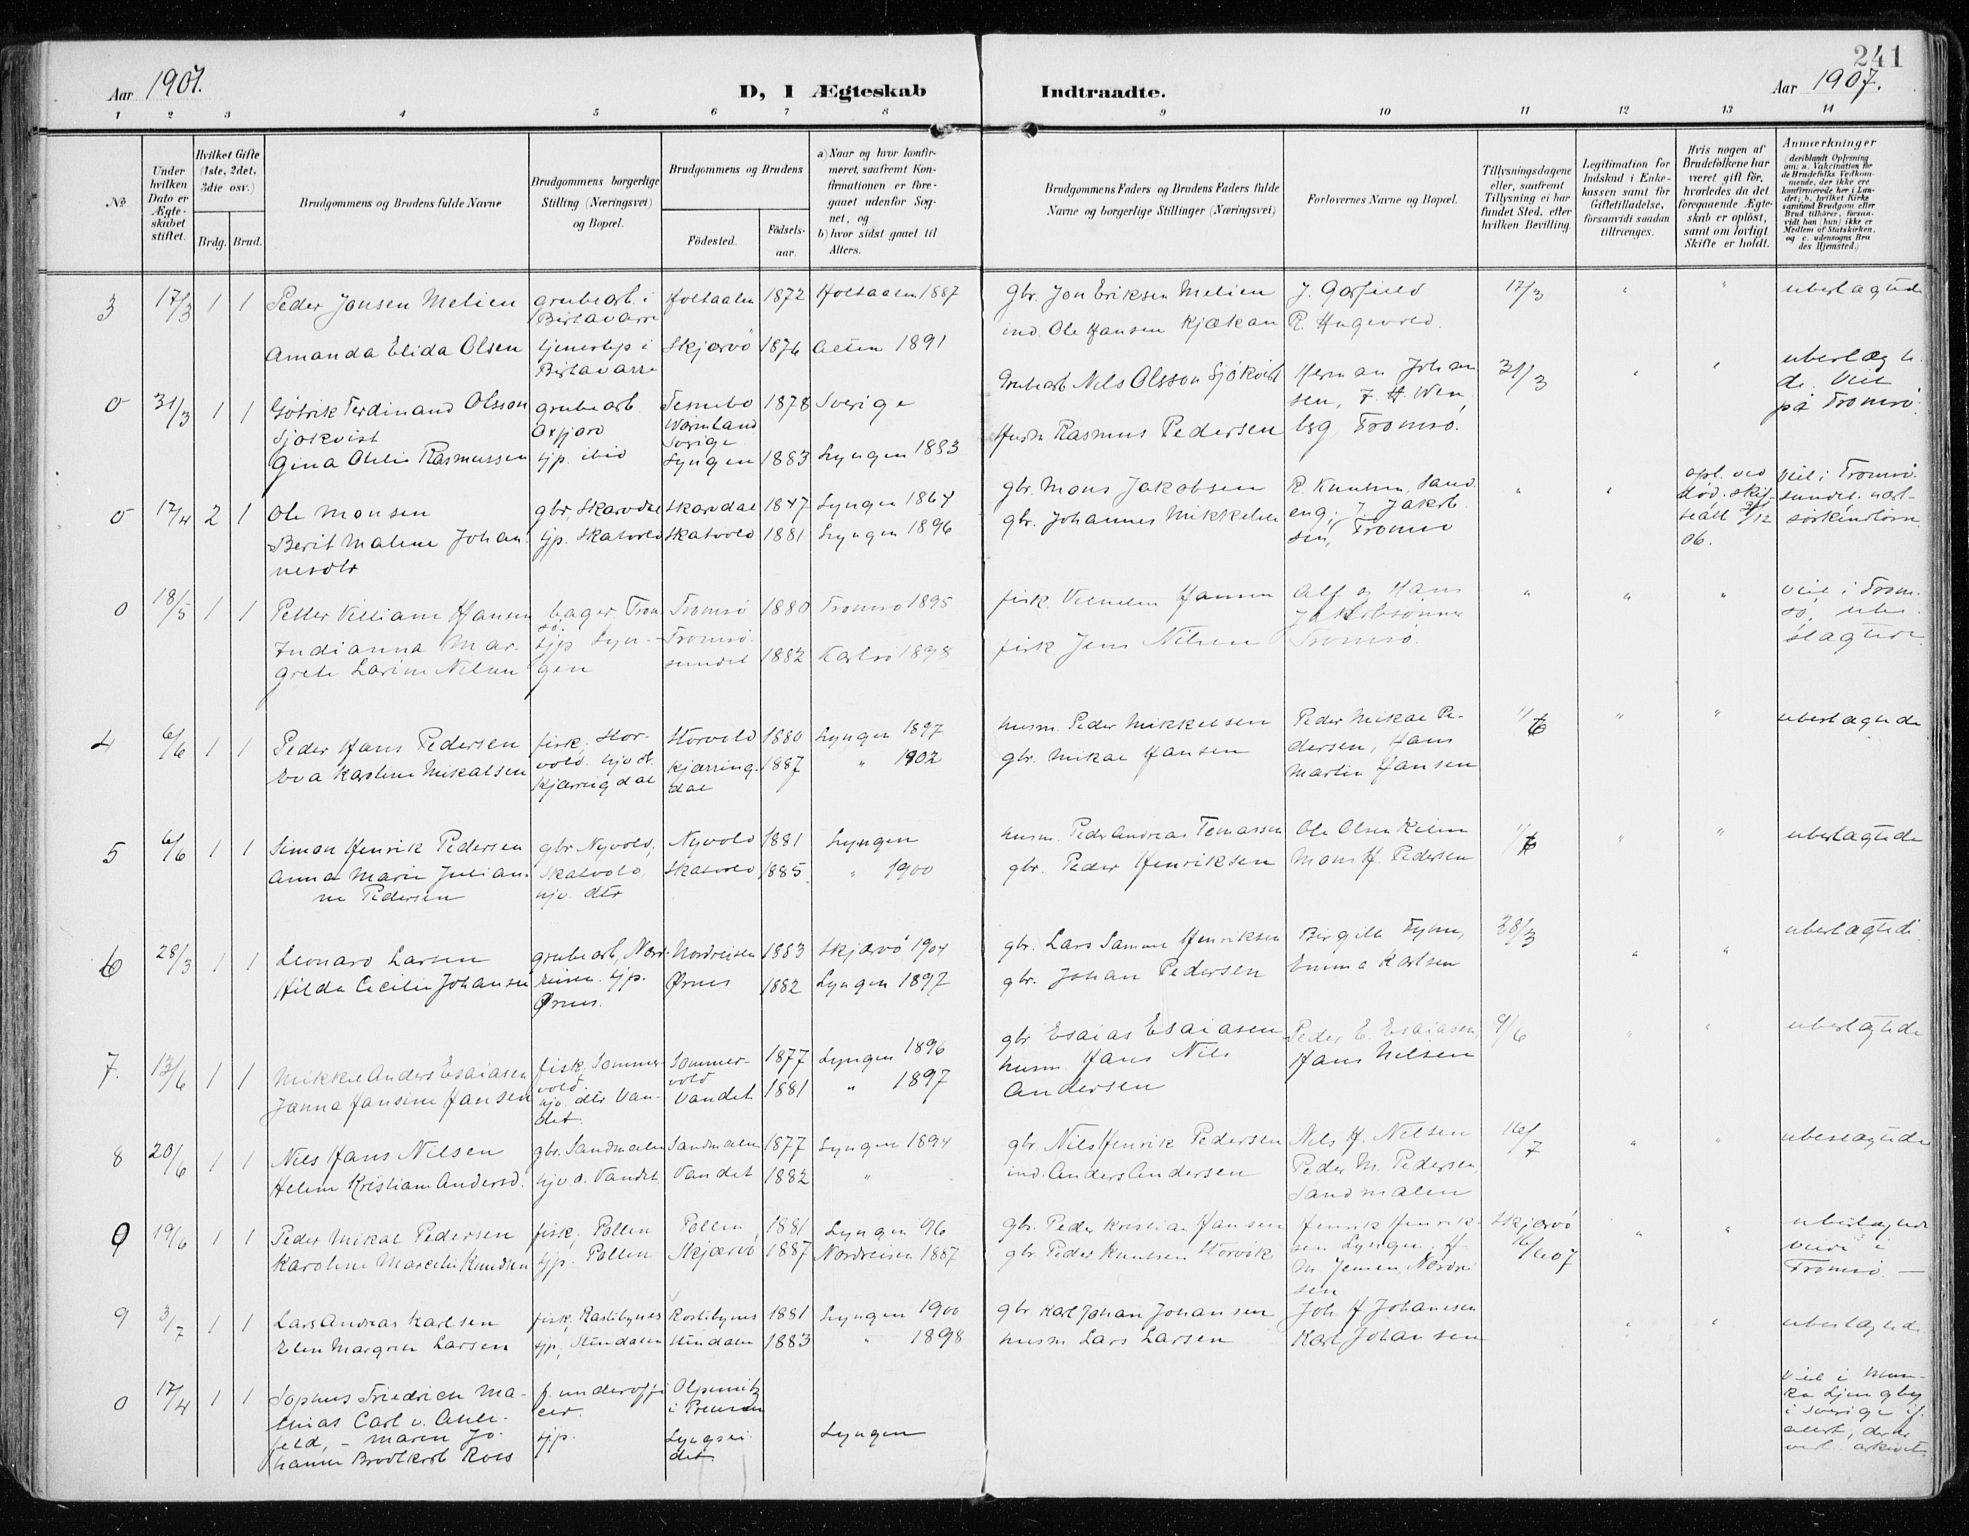 241
Aar 1907.
D, I Ægteskab Indtraadte.
Aar 1907.
1 2 3 4 5 6 7 8 9 10 11 12 13 14
No
Under hvilken Dato er Ægteskabet stiftet.
Hvilket Gifte (1ste, 2det, 3die osv.)
Brdg. Brud.
Brudgommens og Brudens fulde Navne
Brudgommens borgerlige Stilling (Næringsvei) og Bopæl.
Brudgommens og Brudens
Födested.
Födselsaar.
a) Naar og hvor konfirmeret, saafremt Konfirmationen er foregaaet udenfor Sognet, og
b) hvor sidst gaaet til Alters.
Brudgommens Faders og Brudens Faders fulde Navne og borgerlige Stillinger (Næringsvei)
Forlovernes Navne og Bopæl.
Tillysningsdagene eller, saafremt Tillysning ei har fundet Sted, efter hvilken Bevilling
Legitimation for Indskud i Enkekassen samt for Giftetilladelse, forsaavidt saadan tiltrænges.
Hvis nogen af Brudefolkene har været gift før, hvorledes da det foregaaende Ægteskab er oplöst, samt om lovligt Skifte er holdt.
Anmerkninger
3 17/3 1 1 Peder Jonsen Melien grubearb. i Birtavarre Holtaalen 1872 Holtaalen 1887 gbr. Jon Eriksen Melien J. Garfield 17/3 " " ubeslægtede
Amanda Elida Olsen tjenestep i Birtavarre Skjærvö 1876 Alten 1891 ind. Ole Hansen Kjækan R. Hagevold.
0 31/3 1 1 Götrik Ferdinand Olsson Sjökvist grubearb. Wärmland Sverige 1878 Sverige Grubearb Nils Olsson Sjökvist Herman Johansen, F. H. Wenberg Tromsö. 31/3 " " ubeslægtede. Viet på Tromsö.
Gina Otilie Rasmussen tjp. ibid Lyngen 1883 Lyngen 1883 Husm Rasmus Pedersen
0 17/4 2 1 Ole Monsen gbr, Skardal Skardal 1847 Lyngen 1864 gbr. Mons Jakobsen " " opl. ved död. 3/12 06. Viet i Tromsö
Berit Malene Johannesdtr tjp. Skatvold Skatvold 1881 Lyngen 1896 gbr. Johannes Mikkelsen
0 18/5 1 1 Petter Villiam Hansen bager, Tromsö. Tromsö 1880 Tromsö 1895 fisk. Vilhelm Hansen Alf og Hans Jakobsönner Tromsö. " " " viet i Tromsö, ubeslægtede
Indianna Margrete Larine Nilsen tjp Lyngen Tromsösundet 1882 Karlsö 1898 fisk Jens Nilsen
4 6/6 1 1 Peder Hans Pedersen fisk, Storvold. Storvold 1880 Lyngen 1897 husm. Peder Mikkelsen Peder Mikal Pedersen, Hans Martin Hansen " " ubeslægtede
Eva Karoline Mikalsen hjv. dt. Kjærringdal Kjærringdal 1887 " 1902 gbr. Mikal Hansen
5 6/6 1 1 Simon Henrik Pedersen gbr Nyvold, Nyvold 1881 Lyngen husm. Peder Andreas Tomassen Ole Olsen " " ubeslægtede
Anna Marie Julianne Pedersen Skatvold, hjv. dtr Skatvold 1885. " 1900 gbr. Peder Henriksen Mons H. Pedersen
6 28/3 1 1 Leonard Larsen grubearb, Nordreisen Nordreisen 1883 Skjærvö 1904 gbr. Lars Samuel Henriksen 28/3 " " ubeslægtede.
Hilda Cecilie Johansen tjp. Ørnes. Ørnes 1882 Lyngen 1897 gbr. Johan Pedersen Emma Karlsen
7. 13/6 1 1 Mikkel Anders Esaiasen fisk, Sommervold Sommervold 1877 Lyngen 1896 gbr Esaias Esaiasen Peder E. Esaiasen 9/6 " " ubeslægtede
Janna Jansine Hansen hjv. dtr Vandet. Vandet 1881 " 1897 husm. Hans Nils Andersen Hans Nilsen
8 20/6 1 1 Nils Hans Nilsen gbr. Sandmælen Sandmælen 1877 Lyngen 1894 gbr Nils Henrik Pedersen Nils H. Nilsen 16/7 " " ubeslægtede
Helene Kristiane Andersd. hjv d. Vandet. Vandet 1882 " ind. Anders Andersen Peder M. Pedersen, Sandmælen
0 19/6 1 1 Peder Mikal Pedersen fisk, Pollen Pollen 1881 Lyngen 96 gbr. Peder Kristian Hansen Henrik Henriksen Lyngen. Skjærvö " " ubeslægtede viede i Tromsö. —
Karoline Marcelie Knudsen tjp. Pollen Skjærvö 1887 Nordreisen 1887 gbr Peder Knutsen Storvik M. Jensen, Nordreisen
9 3/7 1 1 Lars Andreas Karlsen fisk, Rastibynes Rastibynes 1881 Lyngen 1900 gbr Karl Johan Johansen Joh. H Johansen " " ubeslægtede
Elen Margrete Larsen tjp, Stendalen Stendalen 1883 " 1898 husm. Lars Larsen Karl Johansen
0 17/4 1 1 Sophus Friedrich Mathias Carl v. f. underofficer. i Preussen viet i Munka Ljungby i Sverige
Maren Johanne Brodtkorb Ross tjp. Lyngseidet Lyngen